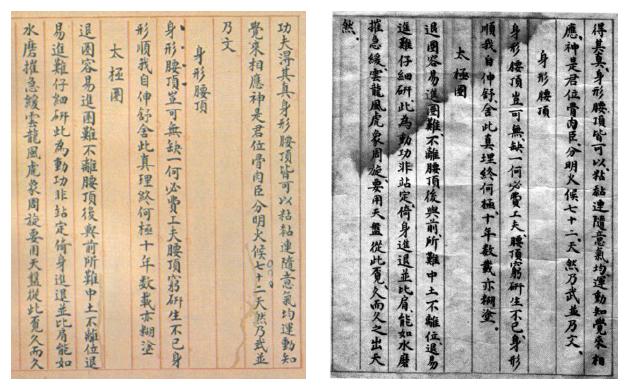 功夫得其真身形腰頂皆可以粘黏連隨意氣均運動知
覺來相應神是君位骨肉臣分明火候七十二天然乃武並
乃文
身形腰頂
身形腰頂豈可無缺一何必費工夫腰頂窮研生不已身
形順我自伸舒舍此真理終何極十年數載亦糊塗
太極圈
退圈容易進圈難不離腰頂後與前所難中土不離位退
易進難仔細研此為動功非站定倚身進退並比肩能如
水磨摧急緩雲龍風虎象周旋要用天盤從此覓久而久
得其真、身形腰頂皆可以、粘黏連隨意氣均、運動知覺來相
應、神是君位骨肉臣、分明火候七十二、天然乃武並乃文、
身形腰頂
身形腰頂豈可無、缺一何必費工夫、腰頂窮研生不已、身形
順我自伸舒、舍此真理終何極、十年數載亦糊塗。
太極圈
退圈容易進圈難、不離腰頂後與前、所難中土不離位、退易
進難仔細研、此為動功非站定、倚身進退並比肩、能如水磨
摧急緩、雲龍風虎象周旋、要用天盤從此覓、久而久之出天
然。